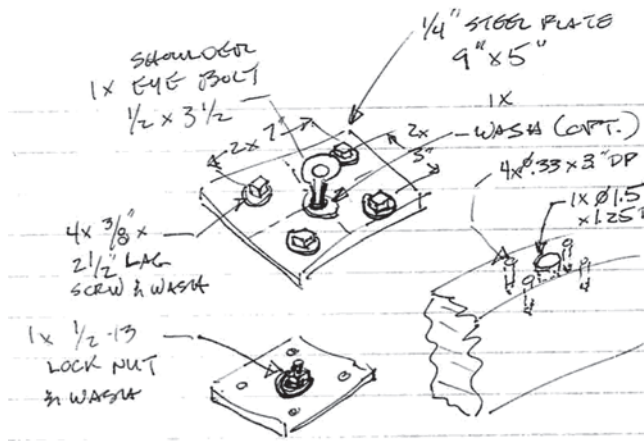 1/4" STEEL PLATE
9" x 5"
SHOULDER
1x EYE BOLT
1/2 x 3 1/2
1x
WASH (OPT.)
2x 7"
2x
3"
4x Ø.33 x 3" DP
1x Ø1.5
x 1.25"
4x 3/8" x
2 1/2" LAG
SCRW & WASH
1x 1/2-13
LOCK NUT
& WASH